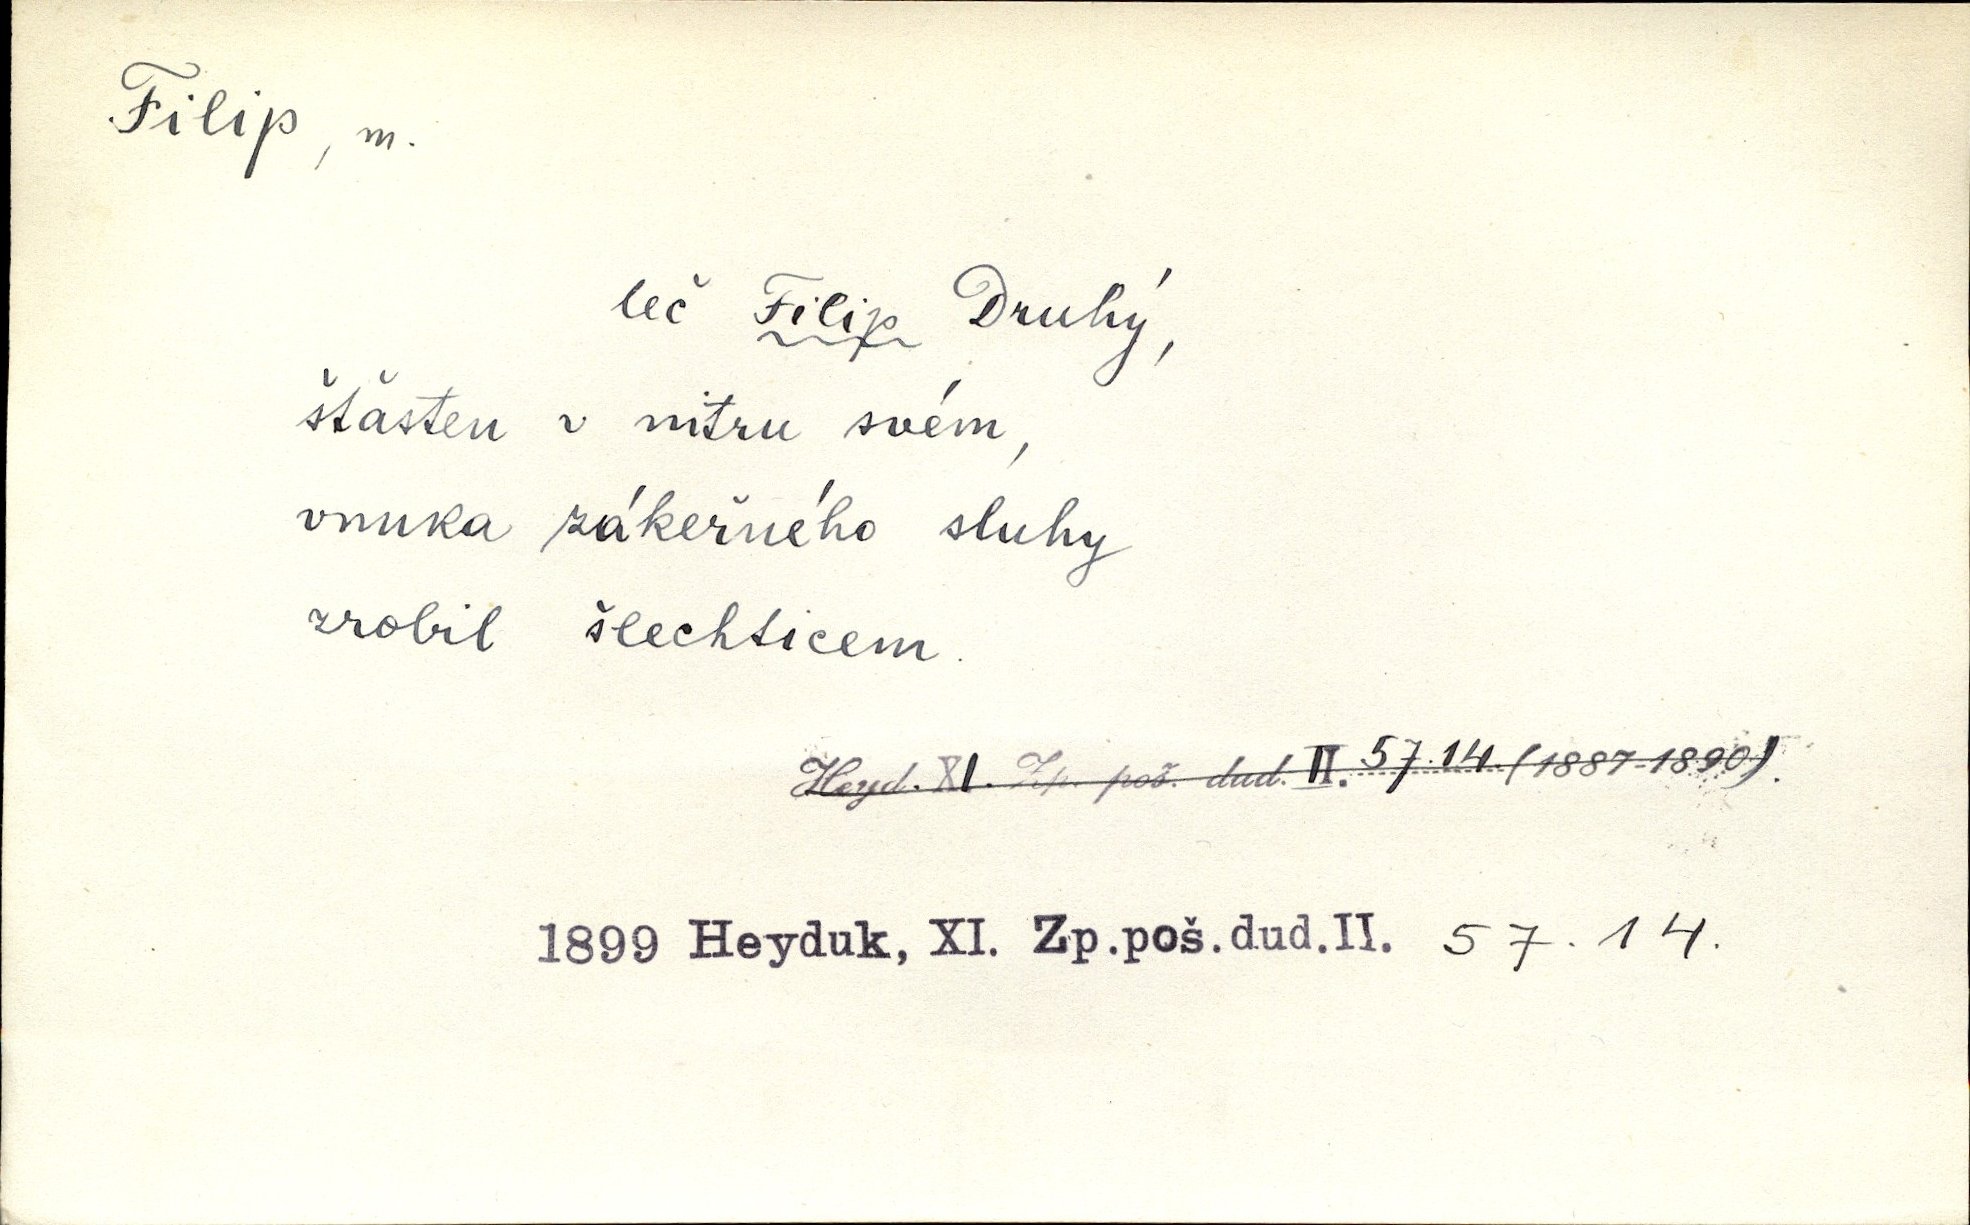 Filip, m.
leč Filip Druhý,
šťasten v nitru svém,
vnuka zákeřného sluhy
zrobil šlechticem.
Heyd. XI. Zp. poš. dud. II. 57.14. (1887-1890).
1899 Heyduk, XI. Zp.poš.dud.II. 57.14.